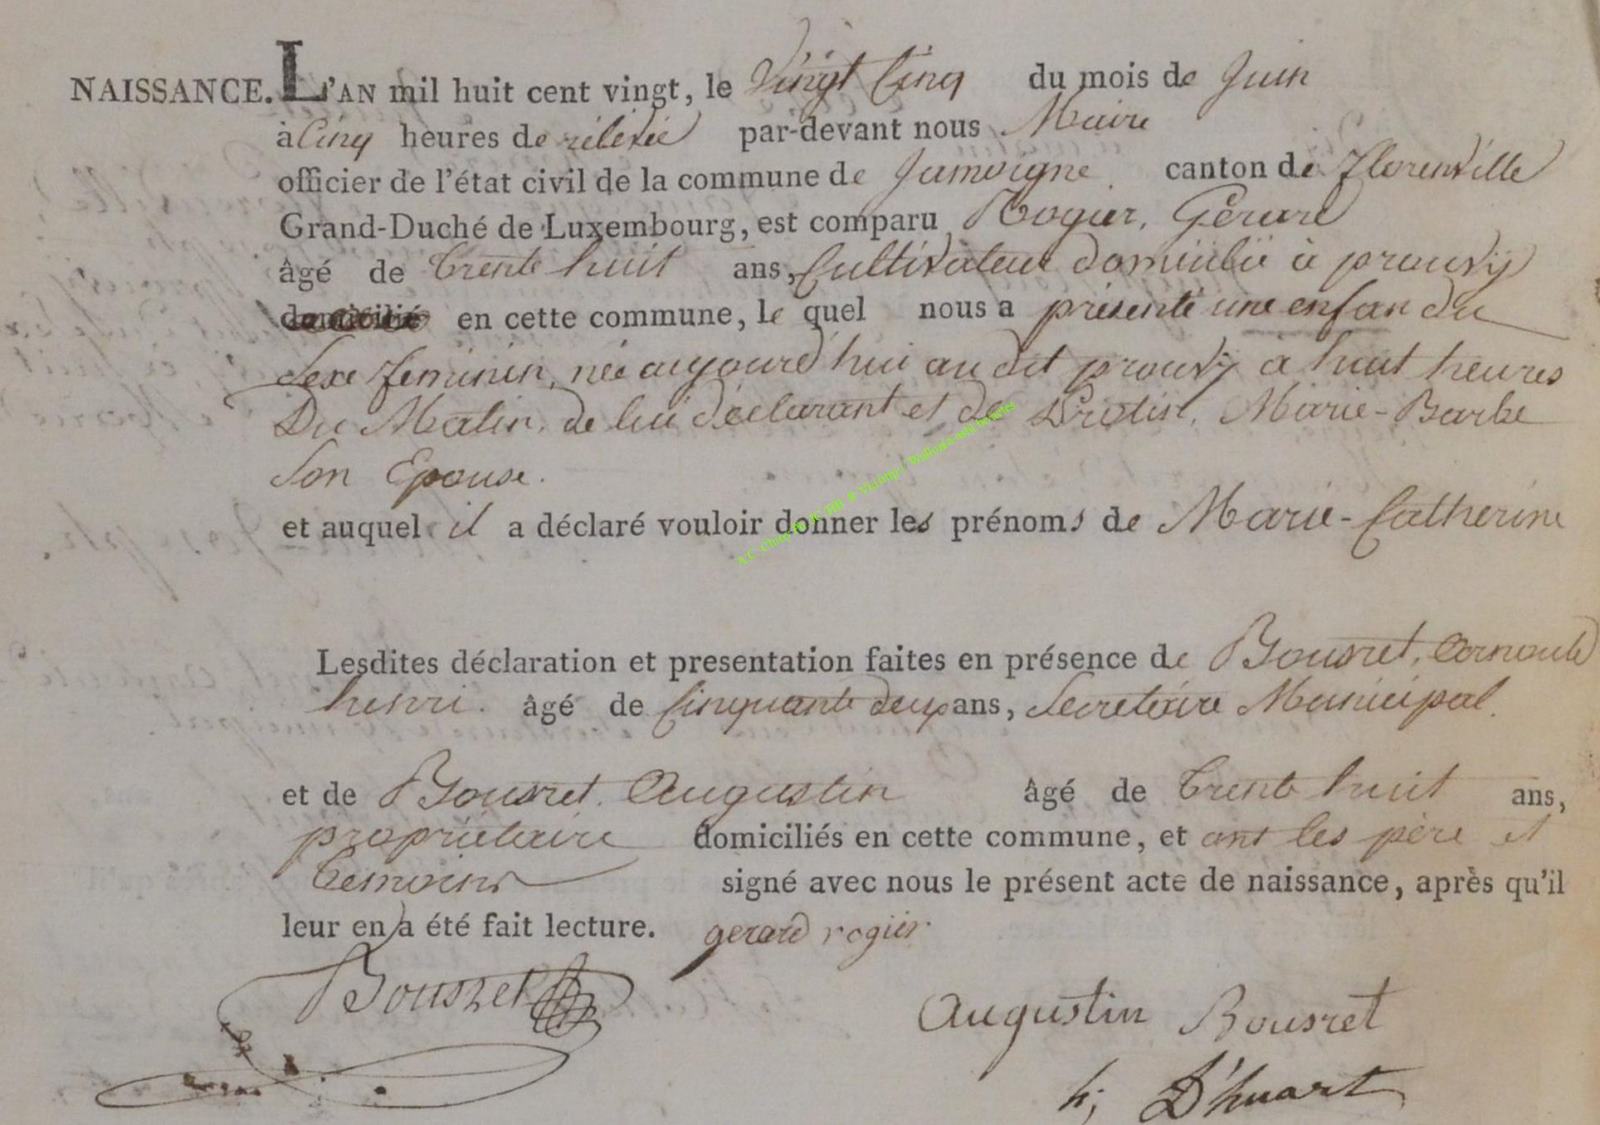 NAISSANCE. L'AN mil huit cent vingt, le Vingt Cinq du mois de Juin
à Cinq heures de rélévée par-devant nous Maire
officier de l'état civil de la commune de Jamoigne. canton de Florenville
Grand-Duché de Luxembourg, est comparu Rogier, Gérard
âgé de trente huit ans, Cultivateur domicilié à prouvy
domicilié en cette commune, le quel nous a présenté une enfan du
Sexe feminin, née aujourd'hui au dit prouvy à huit heures
Du Matin, de lui déclarant et de Protin, Marie-Barbe
Son Epouse.
et auquel il a déclaré vouloir donner les prénoms de Marie-Catherine
Lesdites déclaration et presentation faites en présence de Bousret, Arnould
henri. âgé de Cinquante deux ans, Secretaire Municipal.
et de Bousret. Augustin âgé de trente huit ans,
propriétaire domiciliés en cette commune, et ont les père et
temoins signé avec nous le présent acte de naissance, après qu'il
leur en a été fait lecture. gerard rogier
Bousret
Augustin Bousret
h; D'huart